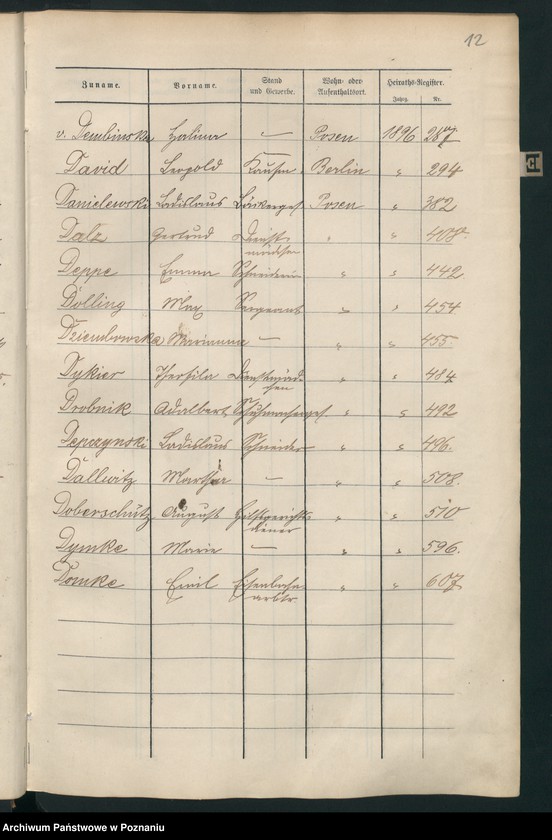 12
Zuname. Vorname. Stand und Gewerbe. Wohn- oder Aufenthaltsort. Heiraths-Register.
Jahrg. Nr.
v. Dembinska Halina — Posen 1896 287
David Leopold Kaufm. Berlin " 294
Danielewski Ladislaus Bäckerges. Posen " 382
Dalz Gertrud Dienst- " " 408
mädchen
Deppe Emma Schneiderin " " 442
Dölling Max Sergeant " " 454
Dziembowska Marianna — " " 455.
Dykier Dienstmäd- " " 484
chen
Drobnik Adalbert Schuhmacherges. " " 492
Depczynski Ladislaus Schneider " " 496.
Dallwitz Martha — " " 508.
Doberschütz August " " 510
diener
Dymke Marie — " " 596.
Domke Emil Eisenbahn- " " 607
arbtr.
D
Archiwum Państwowe w Poznaniu